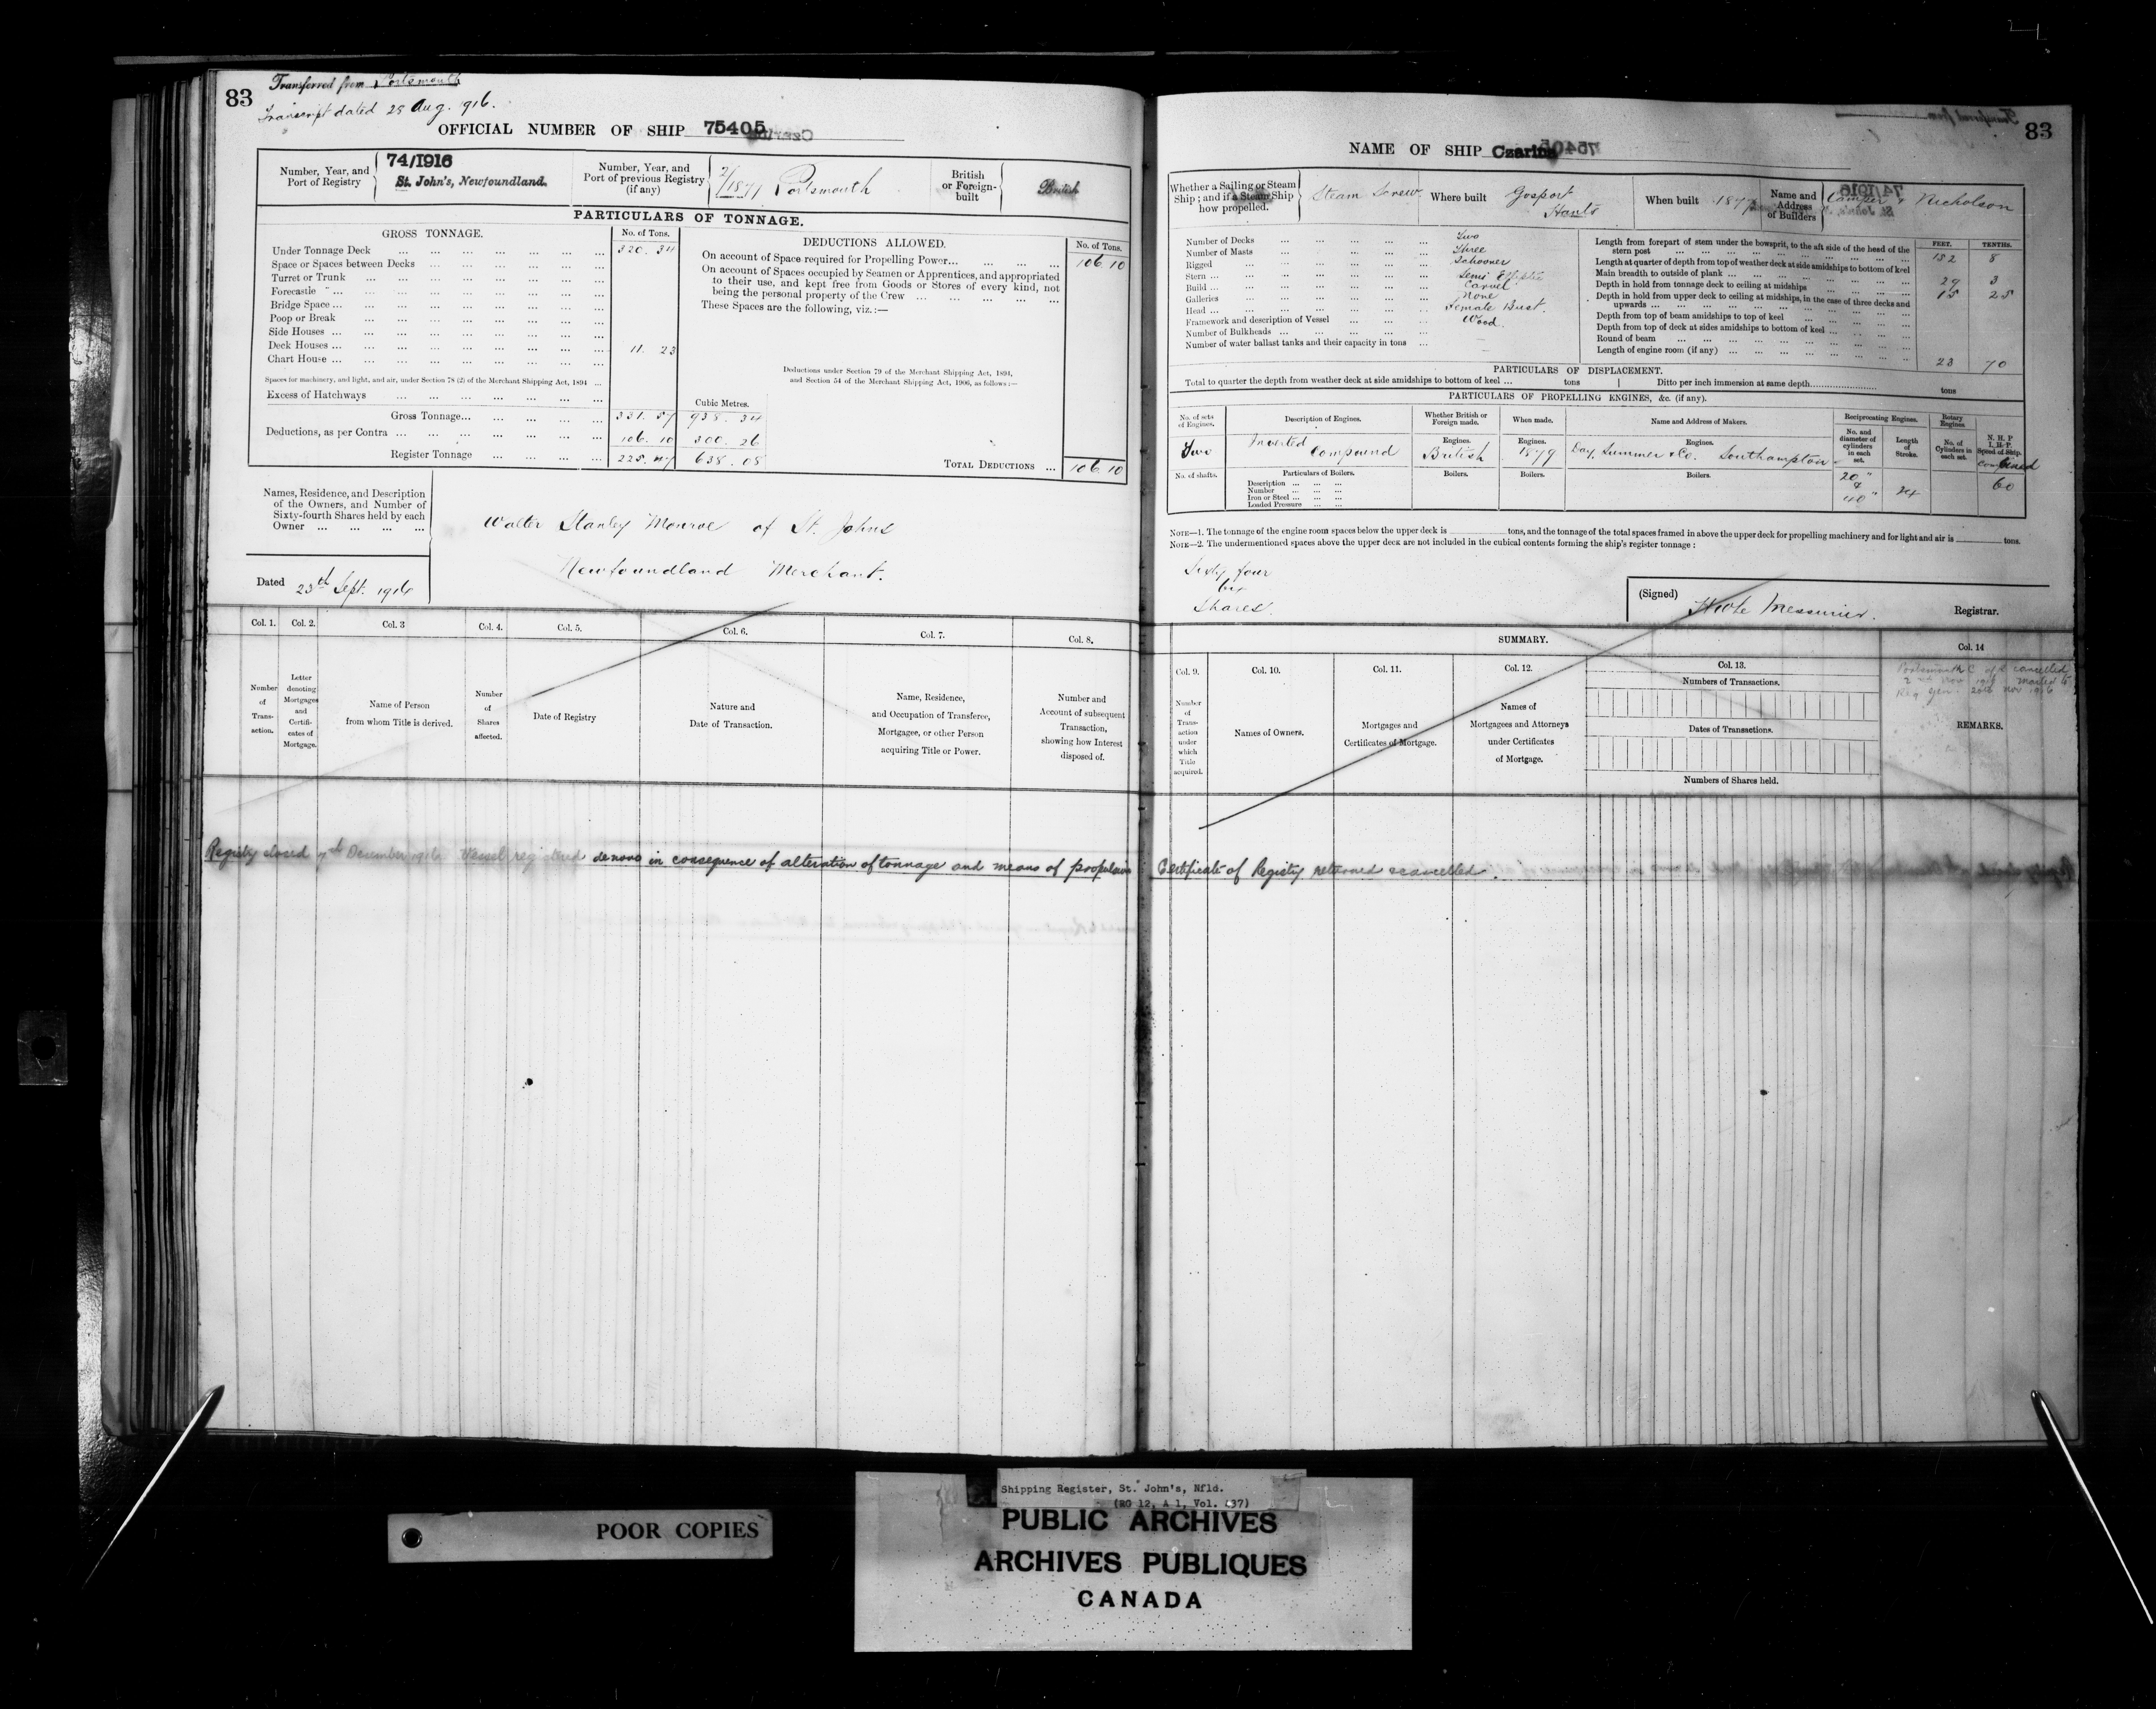 83
Transferred from Portsmouth
Transcript dated 25 Aug. 1916.
OFFICIAL NUMBER OF SHIP 75405
Number, Year, and Port of Registry
74/1916
St. John's, Newfoundland.
Number, Year, and Port of previous Registry (if any)
2/1877 Portsmouth
British or Foreign-built
British
PARTICULARS OF TONNAGE.
GROSS TONNAGE.
No. of Tons.
Under Tonnage Deck ... 320.34
Space or Spaces between Decks
Turret or Trunk
Forecastle
Bridge Space
Poop or Break
Side Houses
Deck Houses ... 11.23
Chart House
Spaces for machinery, and light, and air, under Section 78 (2) of the Merchant Shipping Act, 1894
Excess of Hatchways
Cubic Metres.
Gross Tonnage... 331.57 938.34
Deductions, as per Contra ... 106.10 300.26
Register Tonnage ... 225.47 638.08
DEDUCTIONS ALLOWED.
No. of Tons.
On account of Space required for Propelling Power... 106.10
On account of Spaces occupied by Seamen or Apprentices, and appropriated
to their use, and kept free from Goods or Stores of every kind, not
being the personal property of the Crew
These Spaces are the following, viz.:—
Deductions under Section 79 of the Merchant Shipping Act, 1894,
and Section 54 of the Merchant Shipping Act, 1906, as follows:—
TOTAL DEDUCTIONS ... 106.10
Names, Residence, and Description
of the Owners, and Number of
Sixty-fourth Shares held by each
Owner
Walter Stanley Monroe of St. Johns
Newfoundland Merchant.
Dated 23th Sept. 1916
Col. 1. Col. 2. Col. 3 Col. 4. Col. 5. Col. 6. Col. 7. Col. 8.
Number of Trans-action.
Letter denoting Mortgages and Certifi-cates of Mortgage.
Name of Person from whom Title is derived.
Number of Shares affected.
Date of Registry
Nature and Date of Transaction.
Name, Residence, and Occupation of Transferee, Mortgagee, or other Person acquiring Title or Power.
Number and Account of subsequent Transaction, showing how Interest disposed of.
Registry closed 7th December 1916 Vessel registered denovo in consequence of alteration of tonnage and means of propulsion
83
NAME OF SHIP Czarina
Whether a Sailing or Steam Ship; and if a Steam Ship how propelled.
Steam Screw
Where built
Gosport
Hants
When built
1877
Name and Address of Builders
Camper & Nicholson
Number of Decks ... Two
Number of Masts ... Three
Rigged ... Schooner
Stern ... Semi Elliptic
Build ... Carvel
Galleries ... None
Head ... Female Bust.
Framework and description of Vessel ... Wood.
Number of Bulkheads ... —
Number of water ballast tanks and their capacity in tons ... —
FEET. TENTHS.
Length from forepart of stem under the bowsprit, to the aft side of the head of the
stern post ... 152 8
Length at quarter of depth from top of weather deck at side amidships to bottom of keel
Main breadth to outside of plank ... 29 3
Depth in hold from tonnage deck to ceiling at midships ... 15 25
Depth in hold from upper deck to ceiling at midships, in the case of three decks and
upwards
Depth from top of beam amidships to top of keel
Depth from top of deck at sides amidships to bottom of keel
Round of beam
Length of engine room (if any) ... 23 70
PARTICULARS OF DISPLACEMENT.
Total to quarter the depth from weather deck at side amidships to bottom of keel ... tons
Ditto per inch immersion at same depth ... tons
PARTICULARS OF PROPELLING ENGINES, &c. (if any).
No. of sets of Engines.
Description of Engines.
Whether British or Foreign made.
When made.
Name and Address of Makers.
Reciprocating Engines.
No. and diameter of cylinders in each set.
Length of Stroke.
Rotary Engines
No. of Cylinders in each set.
N. H. P. I. H. P. Speed of Ship.
Two
Inverted
Compound
Engines. British
Engines. 1879
Engines. Day, Summer & Co. Southampton
Combined
60
20"
&
40"
24
No. of shafts.
Particulars of Boilers.
Description
Number
Iron or Steel
Loaded Pressure
Boilers. Boilers. Boilers.
NOTE—1. The tonnage of the engine room spaces below the upper deck is tons, and the tonnage of the total spaces framed in above the upper deck for propelling machinery and for light and air is tons.
NOTE—2. The undermentioned spaces above the upper deck are not included in the cubical contents forming the ship's register tonnage:
Sixty four
Shares.
(Signed) Messurier. Registrar.
SUMMARY.
Col. 9. Col. 10. Col. 11. Col. 12. Col. 13. Col. 14
Number of Trans-action under which Title acquired.
Names of Owners.
Mortgages and Certificates of Mortgage.
Names of Mortgagees and Attorneys under Certificates of Mortgage.
Numbers of Transactions.
Dates of Transactions.
Numbers of Shares held.
Portsmouth C of R cancelled
2nd Nov 1916
Reg Gen. 20th Nov 1916
REMARKS.
Certificate of Registry returned & cancelled.
POOR COPIES
Shipping Register, St. John's, Nfld.
(RG 12, A 1, Vol. 437)
PUBLIC ARCHIVES
ARCHIVES PUBLIQUES
CANADA